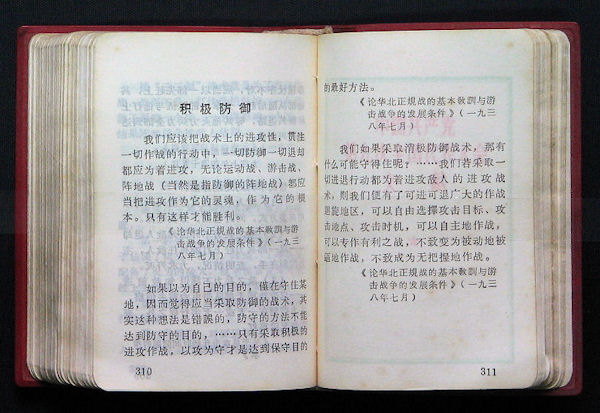 积极防御
我们应该把战术上的进攻性，惯注
一切作战的行动中，一切防御一切退却
都应为着进攻，无论运动战、游击战、
阵地战（当然是指防御的阵地战）都应
当把进攻作为它的灵魂，作为它的根
本。只有这样才能胜利。
《论华北正規战的基本敎訓与游
击战争的发展条件》（一九三
八年七月）
如果以为自己的目的，僅在守住某
地，因而觉得应当采取防御的战术，其
实这种想法是错誤的，防守的方法不能
达到防守的目的，……只有采取积极的
进攻作战，以攻为守才是达到保守目的
310
的最好方法。
《论华北正規战的基本敎訓与游
击战争的发展条件》（一九三
八年七月）
我们如果采取消极防御战术，那有
什么可能守得住呢？……我们若采取一
切进退行动都为着进攻敌人的进攻战
术，则我们便有了可进可退广大的作战
迴旋地区，可以自由选擇攻击目标、攻
击地点、攻击时机，可以自主地作战，
可以专作有利之战，不致变为被动地被
逼地作战，不致成为无把握地作战。
《论华北正規战的基本敎訓与游
击战争的发展条件》（一九三
八年七月）
311